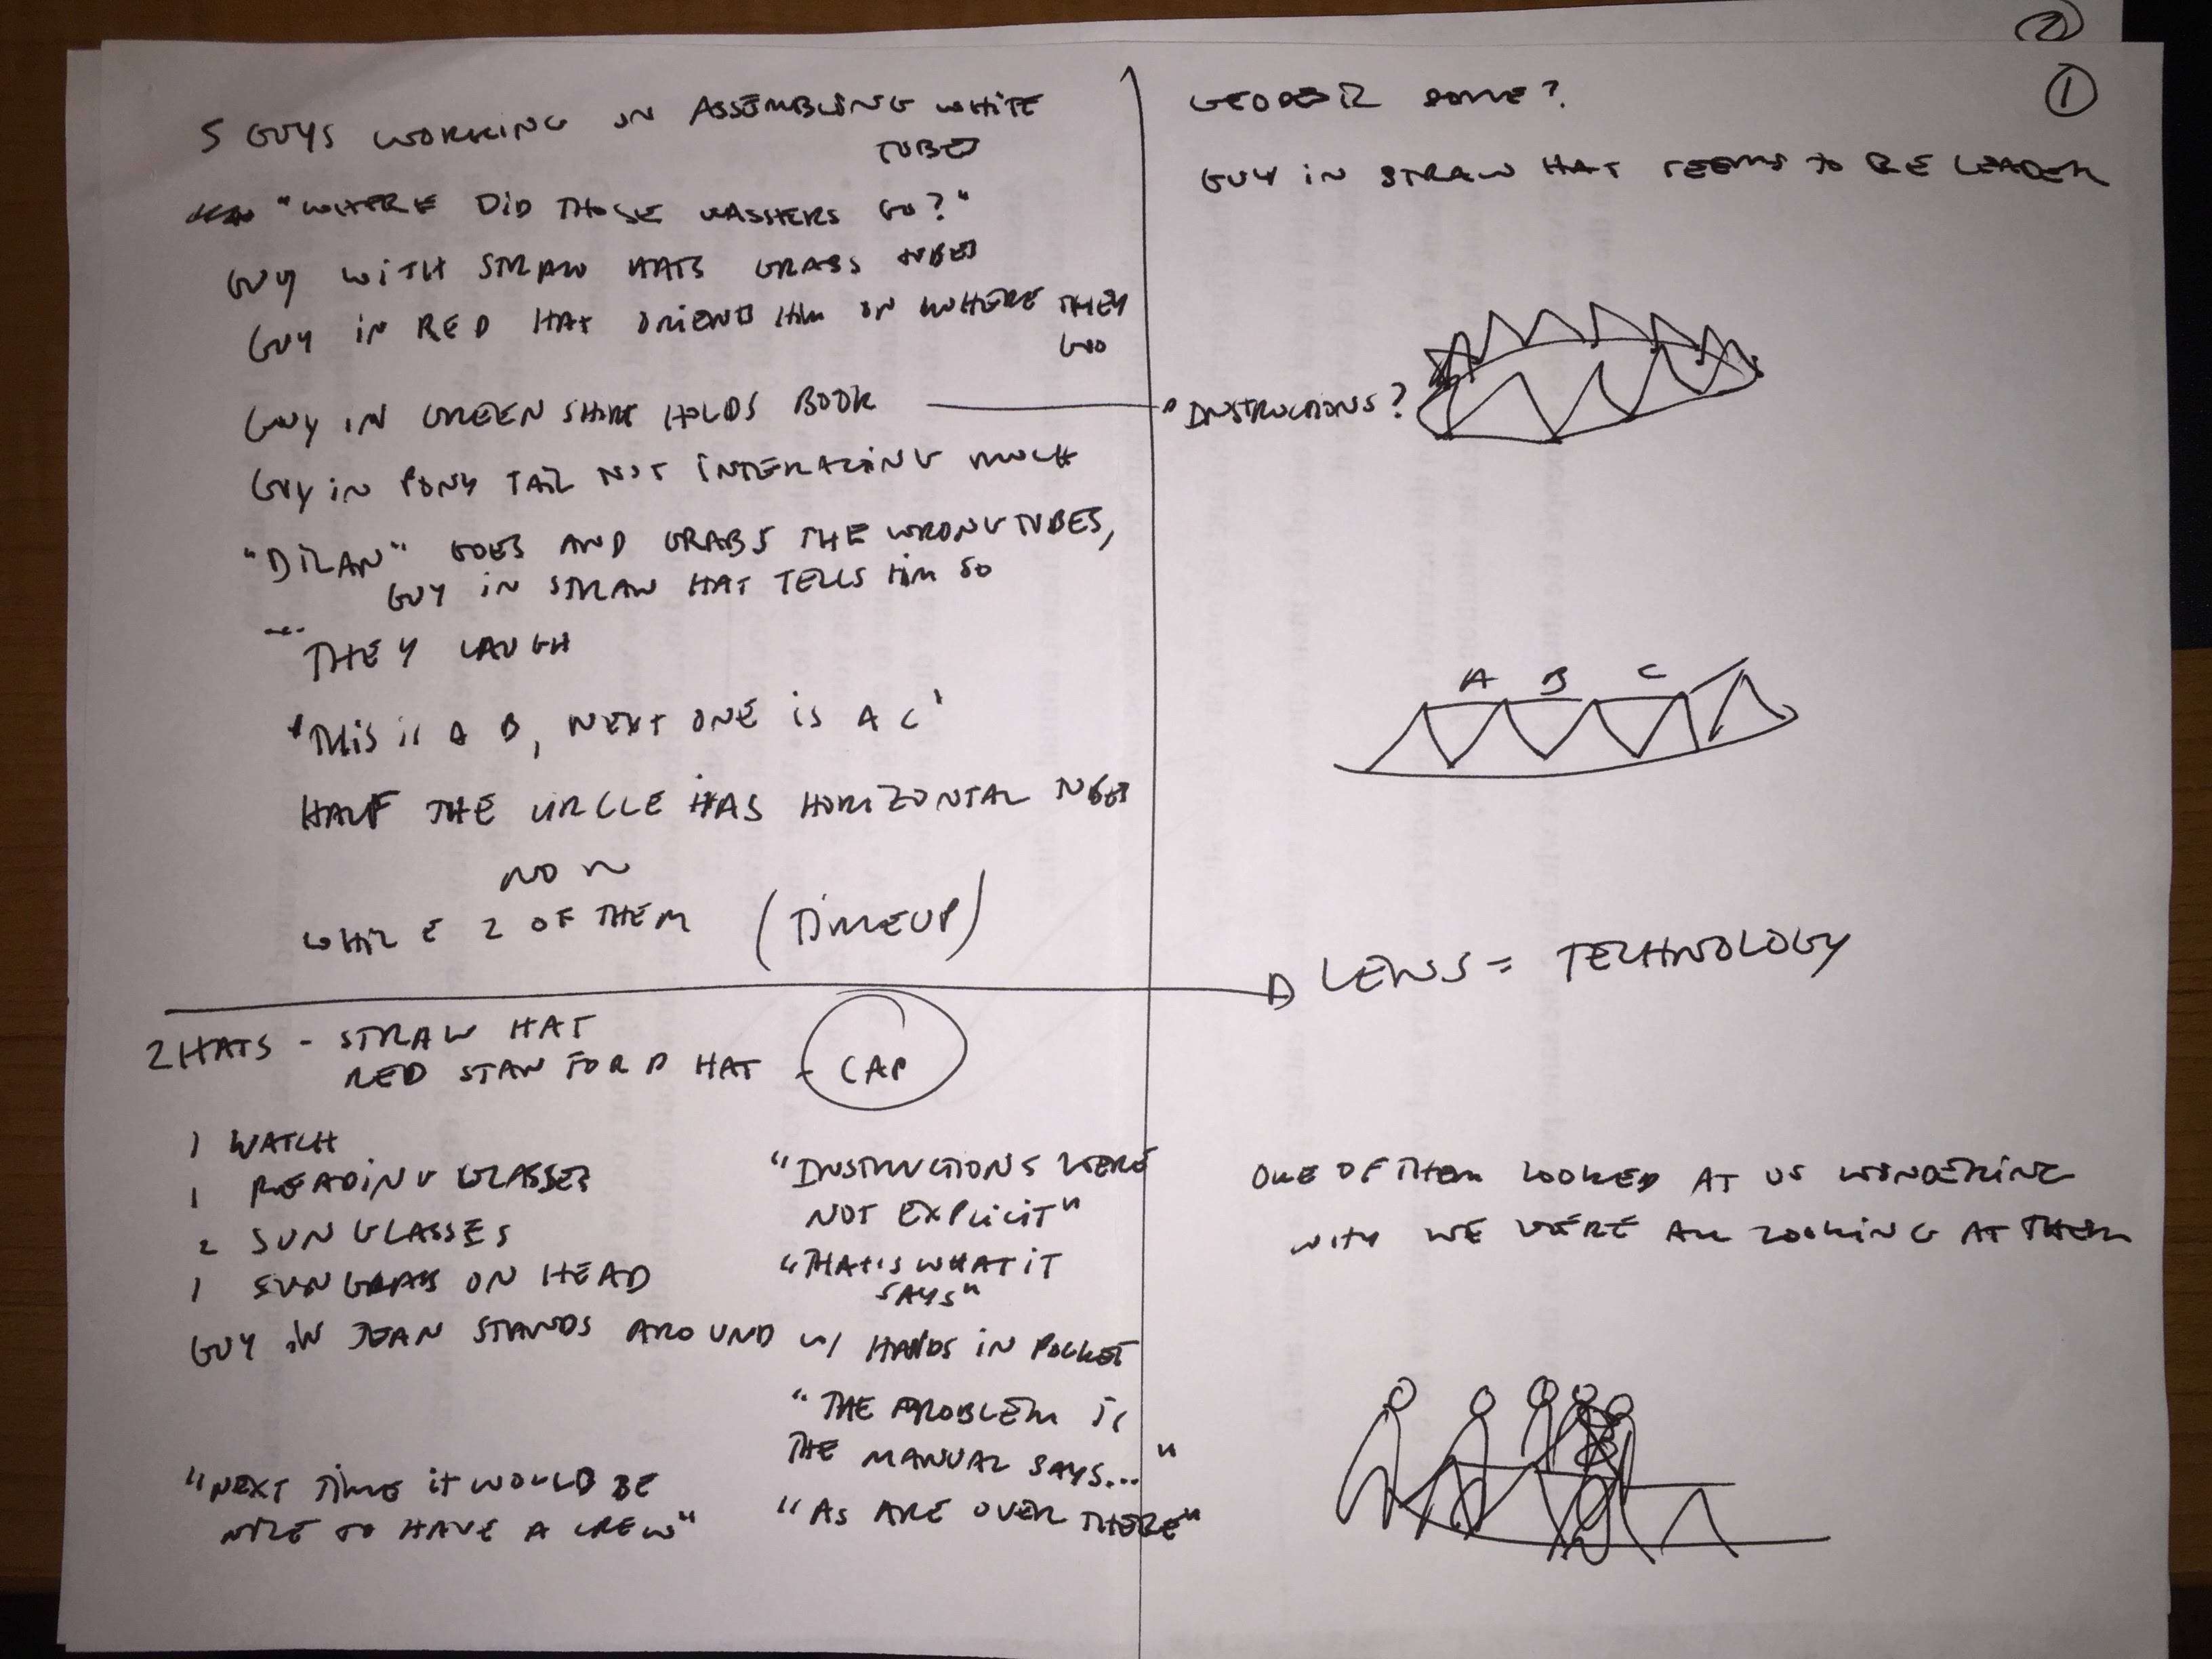 2
1
5 GUYS WORKING ON ASSEMBLING WHITE
TUBES
"WHERE DID THOSE WASHERS GO?"
GUY WITH STRAW HATS GRABS TUBES
GUY IN RED HAT ORIENTS HIM ON WHERE THEY
GO
GUY IN GREEN SHIRT HOLDS BOOK
GUY IN PONY TAIL NOT INTERACTING MUCH
"DILAN" GOES AND GRABS THE WRONG TUBES,
GUY IN STRAW HAT TELLS HIM SO
THEY LAUGH
"THIS IS A B, NEXT ONE IS A C"
HALF THE CIRCLE HAS HORIZONTAL TUBES
NOW
WHILE 2 OF THEM (TIME UP)
GEODESIC DOME?
GUY IN STRAW HAT SEEMS TO BE LEADER
INSTRUCTIONS?
A B C
LENS = TECHNOLOGY
2 HATS - STRAW HAT
RED STANFORD HAT - CAP
1 WATCH
1 READING GLASSES
2 SUNGLASSES
1 SUNGLASS ON HEAD
GUY IN JEAN STANDS AROUND W/ HANDS IN POCKET
"NEXT TIME IT WOULD BE
NICE TO HAVE A CREW"
"INSTRUCTIONS WERE
NOT EXPLICIT"
"THAT'S WHAT IT
SAYS"
"THE PROBLEM IS
THE MANUAL SAYS..."
"AS ARE OVER THERE"
ONE OF THEM LOOKED AT US WONDERING
WHY WE WERE ALL LOOKING AT THEM